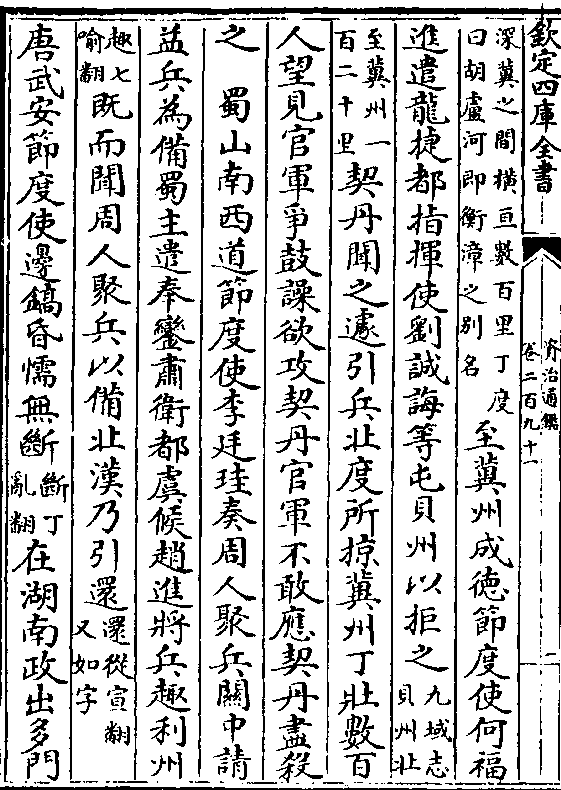 欽定四庫全書
資治通鑑
卷二百九十一
一
深冀之間橫亘數百里丁度曰胡盧河即衡漳之別名至冀州成徳節度使何福
進遣龍捷都指揮使劉誠誨等屯貝州以拒之九域志貝州北
至冀州一百二十里契丹聞之遽引兵北度所掠冀州丁壯數百
人望見官軍爭鼓譟欲攻契丹官軍不敢應契丹盡殺
之　蜀山南西道節度使李廷珪奏周人聚兵關中請
益兵為備蜀主遣奉鑾肅衛都虞候趙進將兵趣利州
趣七喻翻既而聞周人聚兵以備北漢乃引還還從宣翻又如字
唐武安節度使邊鎬昏懦無斷斷丁亂翻在湖南政出多門